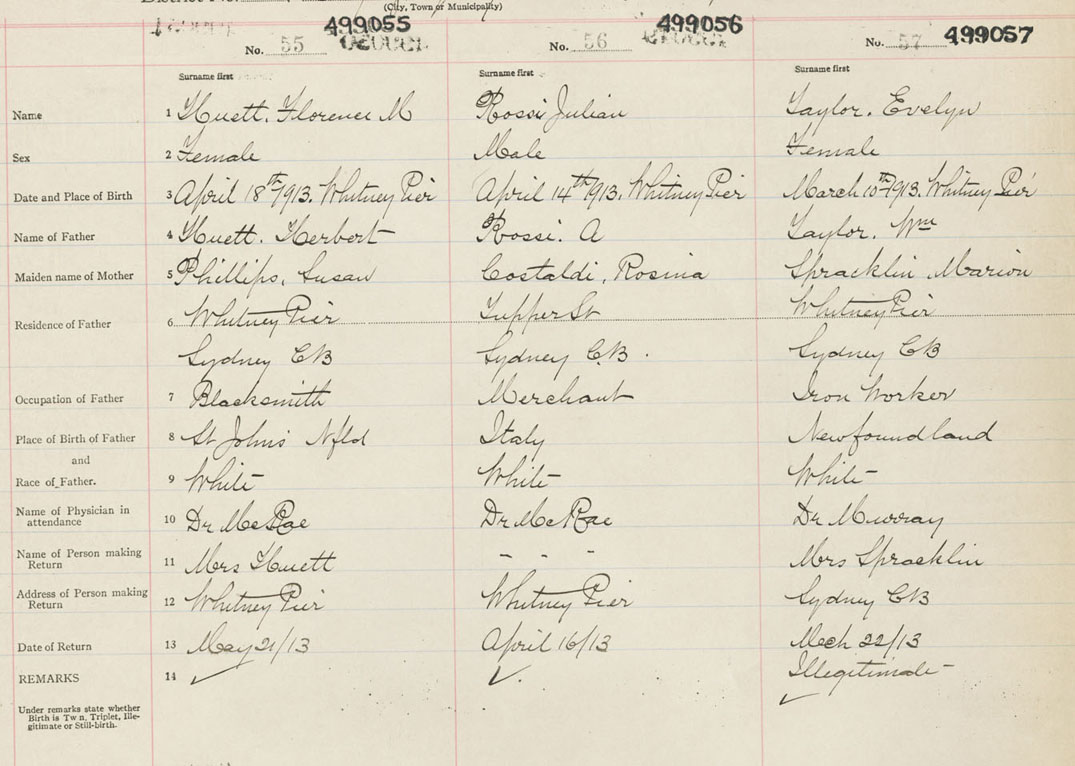 (City, Town or Municipality)
499055 499056 499057
No. 55 No. 56 No. 57
Surname first Surname first Surname first
Name 1 Huett. Florence M Rossi Julian Taylor. Evelyn
Sex 2 Female Male Female
Date and Place of Birth 3 April 18th 1913. Whitney Pier April 14th 1913. Whitney Pier March 10th 1913. Whitney Pier
Name of Father 4 Huett. Herbert Rossi. A Taylor. Wm
Maiden name of Mother 5 Phillips, Susan Costaldi, Rosina Spracklin Marion
Residence of Father 6 Whitney Pier Tupper St Whitney Pier
Sydney CB Sydney C.B. Sydney CB
Occupation of Father 7 Blacksmith Merchant Iron Worker
Place of Birth of Father 8 St Johns Nfld Italy Newfoundland
and
Race of Father. 9 White White White
Name of Physician in attendance 10 Dr McRae Dr McRae Dr Murray
Name of Person making Return 11 Mrs Huett - - - Mrs Spracklin
Address of Person making Return 12 Whitney Pier Whitney Pier Sydney CB
Date of Return 13 May 21/13 April 16/13 Mch 22/13
REMARKS 14 ✓ ✓. Illegitimate ✓
Under remarks state whether
Birth is Tw n, Triplet, Ille-
gitimate or Still-birth.